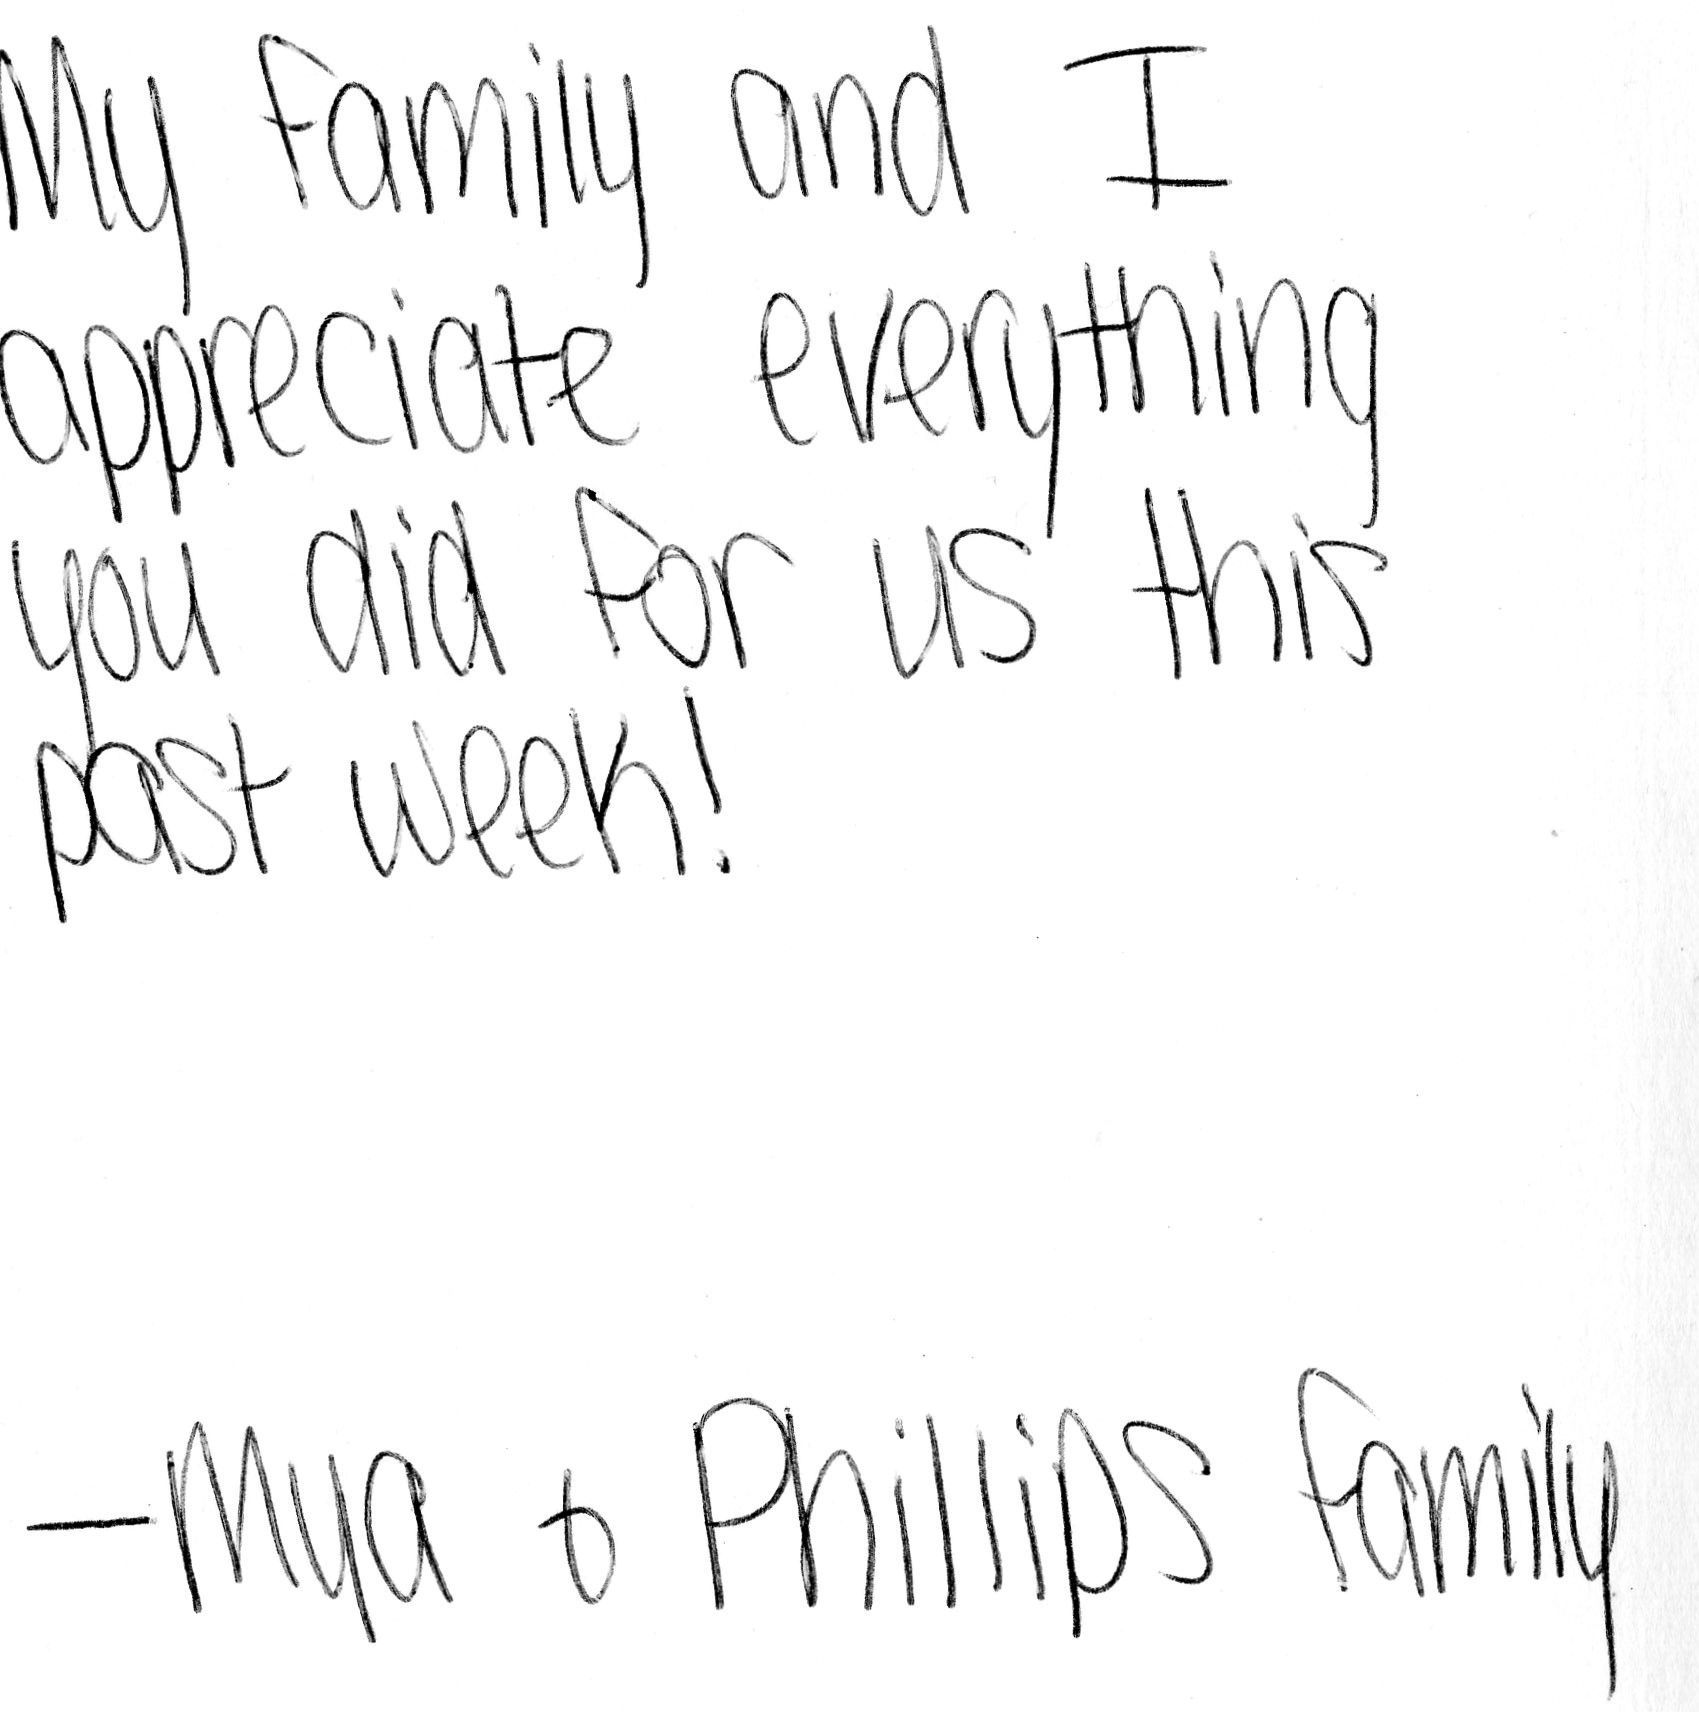 My family and I
appreciate everything
you did for us this
past week!
—Mya & Phillips family